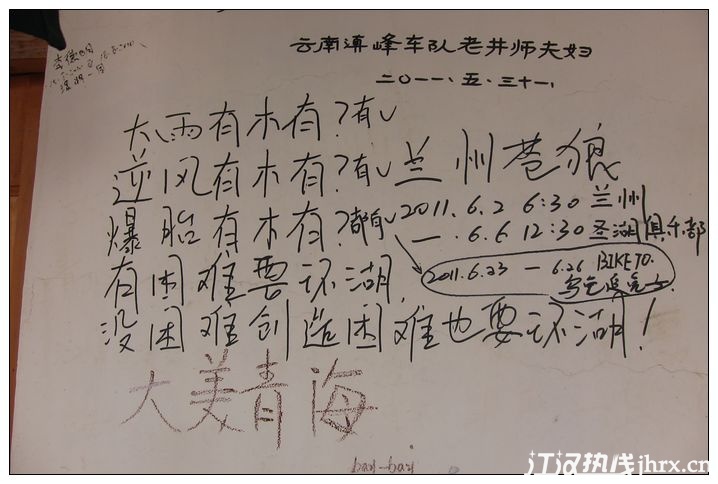 云南滇峰车队老井师夫妇
二〇一一、五、三十一、
大雨有木有?有
逆风有木有?有
兰州苍狼
爆胎有木有?都有
2011.6.2 6:30 兰州
— 6.6 12:30 圣湖俱乐部
有困难要环湖,
2011.6.23 — 6.26 BIKETO.
没困难创造困难也要环湖!
大美青海
bari-bari
江汉热线jhrx.cn